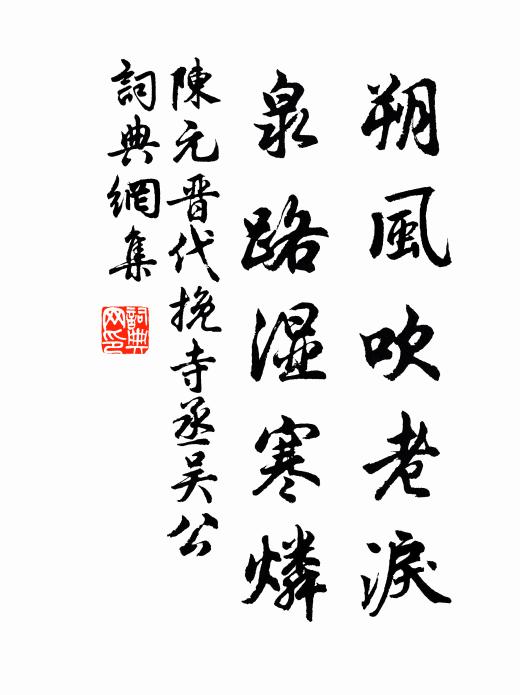 朔風吹老淚
泉路濕寒燐
陳元晋代挽寺丞吴公
詞典網集
詞典網印